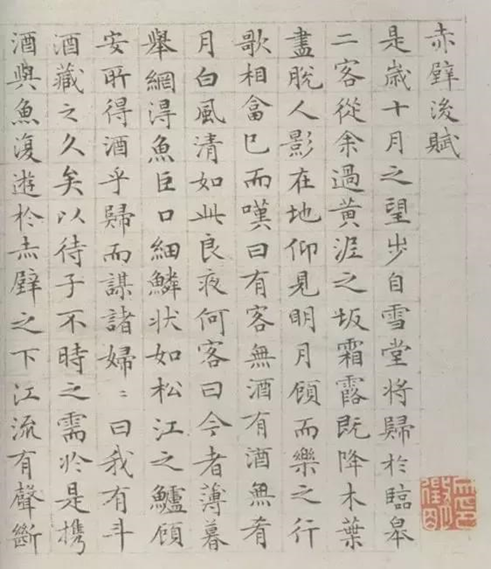 赤壁後賦
是歲十月之望步自雪堂將歸於臨皋
二客從余過黃泥之坂霜露既降木葉
盡脫人影在地仰見明月顧而樂之行
歌相畣巳而嘆曰有客無酒有酒無肴
月白風清如此良夜何客曰今者薄暮
舉網得魚巨口細鱗狀如松江之鱸顧
安所得酒乎歸而謀諸婦〻曰我有斗
酒藏之久矣以待子不時之需於是攜
酒與魚復遊於赤壁之下江流有聲斷